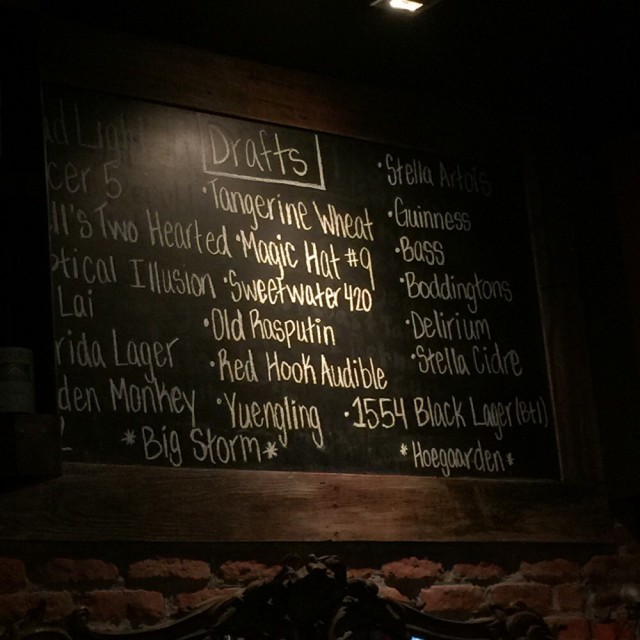 Drafts
ud Light
cer 5
ll's Two Hearted
ptical Illusion
Lai
rida Lager
den Monkey
*Big Storm*
·Tangerine Wheat
·Magic Hat #9
·Sweetwater 420
·Old Rasputin
·Red Hook Audible
·Yuengling
·Stella Artois
·Guinness
·Bass
·Boddingtons
·Delirium
·Stella Cidre
·1554 Black Lager (Btl)
*Hoegaarden*